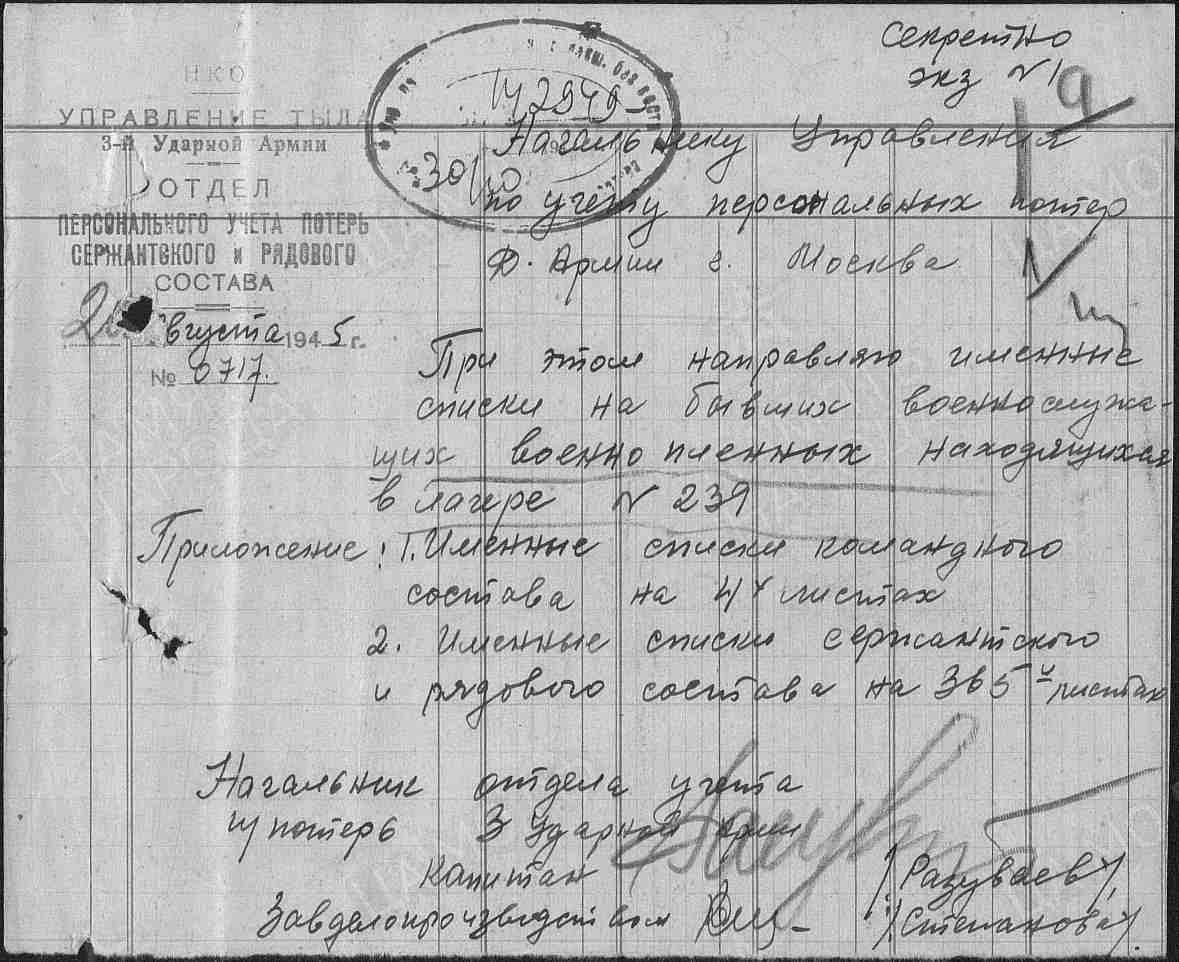 Секретно
экз №1
НКО
УПРАВЛЕНИЕ ТЫЛА
3-й Ударной Армии
ОТДЕЛ
ПЕРСОНАЛЬНОГО УЧЕТА ПОТЕРЬ
СЕРЖАНТСКОГО и РЯДОВОГО
СОСТАВА
августа 1945 г.
№ 0717.
Начальнику Управления
по учету персональных потер
Д. Армии г. Москва
При этом направляю именные
списки на бывших военнослужа-
щих военнопленных находящихся
в лагере № 239
Приложение: 1. Именные списки командного
состава на 4х листах
2. Именные списки сержантского
и рядового состава на 365и листах
Начальник отдела учета
п/потерь 3 Ударной Армии
Капитан /Разуваев/
Завделопроизводством /Степанова/.